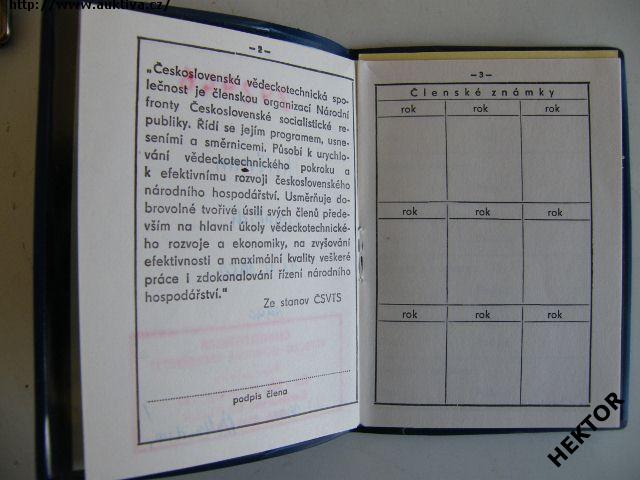 http://www.auktiva.cz/
— 2 —
„Československá vědeckotechnická spo-
lečnost je členskou organizací Národní
fronty Československé socialistické re-
publiky. Řídí se jejím programem, usne-
seními a směrnicemi. Působí k urychlo-
vání vědeckotechnického pokroku a
k efektivnímu rozvoji československého
národního hospodářství. Usměrňuje do-
brovolné tvořivé úsilí svých členů přede-
vším na hlavní úkoly vědeckotechnické-
ho rozvoje a ekonomiky, na zvyšování
efektivnosti a maximální kvality veškeré
práce i zdokonalování řízení národního
hospodářství."
Ze stanov ČSVTS
podpis člena
— 3 —
Členské známky
rok rok rok
rok rok rok
rok rok rok
HEKTOR